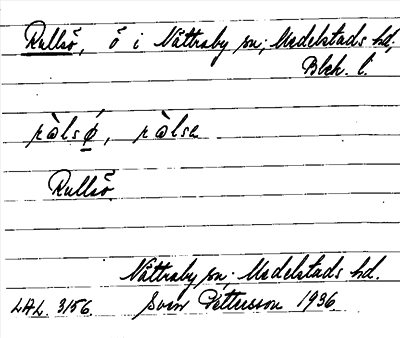 Rullsö, ö i Nättraby sn; Medelstads hd;
Blek. l.
ràlsǿ, ràlsa
Rullsö.
Nättraby sn; Medelstads hd.
LAL. 3156. Sven Pettersson 1936.